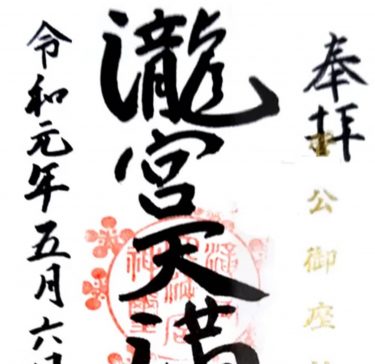 奉拝
公御座
瀧宮天満
令和元年五月六日